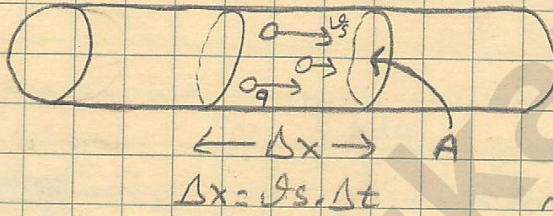 𝜗s
q
Δx
A
Δx = 𝜗s . Δt